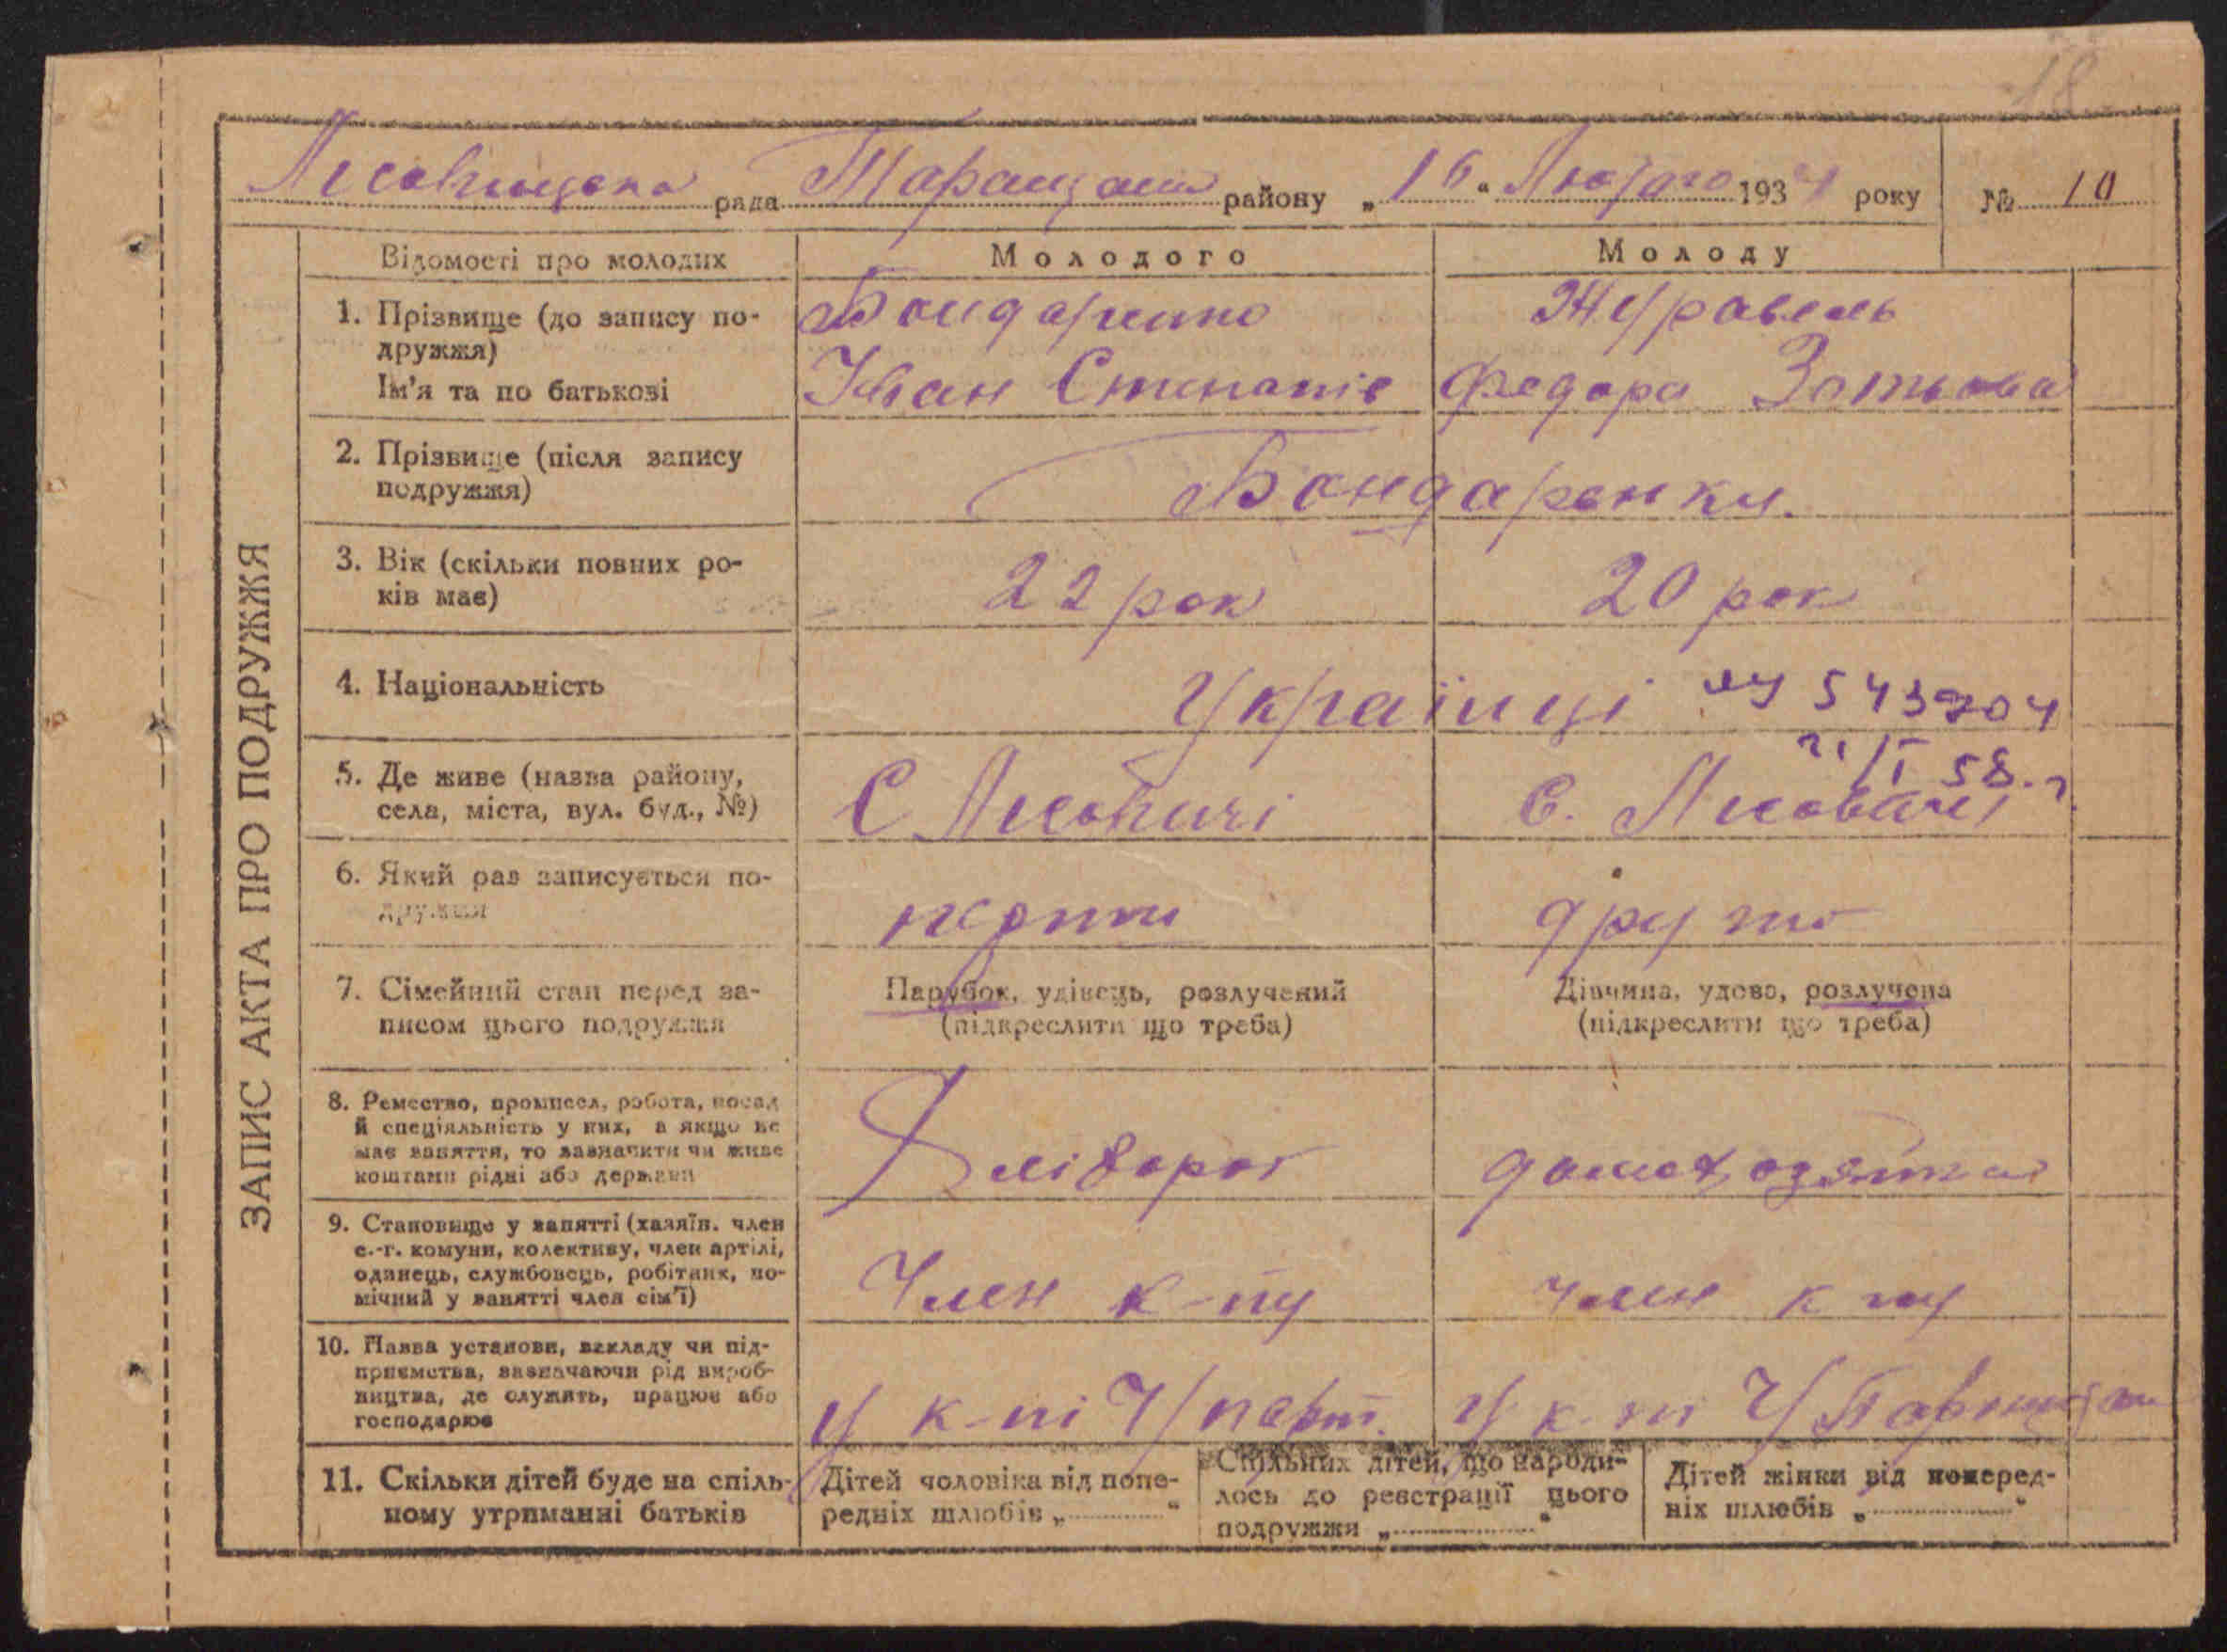 18
Лісовицька рада Таращан району „16“ Лютого 1934 року № 10
ЗАПИС АКТА ПРО ПОДРУЖЖЯ
Відомості про молодих
Молодого
Молоду
1. Прізвище (до запису по-
дружжя)
Ім'я та по батькові
Бондаренко
Іван Степанів
Журавель
Федора Зотьова
2. Прізвище (після запису
подружжя)
Бондаренки.
3. Вік (скільки повних ро-
ків має)
22 рок
20 рок
4. Національність
Українці
5. Де живе (назва району,
села, міста, вул. буд., №)
С Лісовичі
С. Лісовичі
58. г.
6. Який раз записується по-
дружжя
перший
друго
7. Сімейний стан перед за-
писом цього подружжя
Парубок, удівець, розлучений
(підкреслити що треба)
Дівчина, удова, розлучена
(підкреслити що треба)
8. Ремество, промисел, робота, посад
й спеціяльність у них, а якщо не
має заняття, то зазначити чи живе
коштами рідні або держави
Хлібороб
домохозяйка
9. Становище у занятті (хазяїн. член
с.-г. комуни, колективу, член артілі,
одинець, службовець, робітник, по-
мічний у занятті член сім'ї)
Член к-пу
член к пу
10. Назва установи, закладу чи під-
приємства, зазначаючи рід вироб-
ництва, де служить, працює або
господарює
у к-пі
у к-пі
11. Скільки дітей буде на спіль-
ному утриманні батьків
Дітей чоловіка від попе-
редніх шлюбів „ “
Спільних дітей, що народи-
лось до реєстрації цього
подружжя „ “
Дітей жінки від поперед-
ніх шлюбів „ “